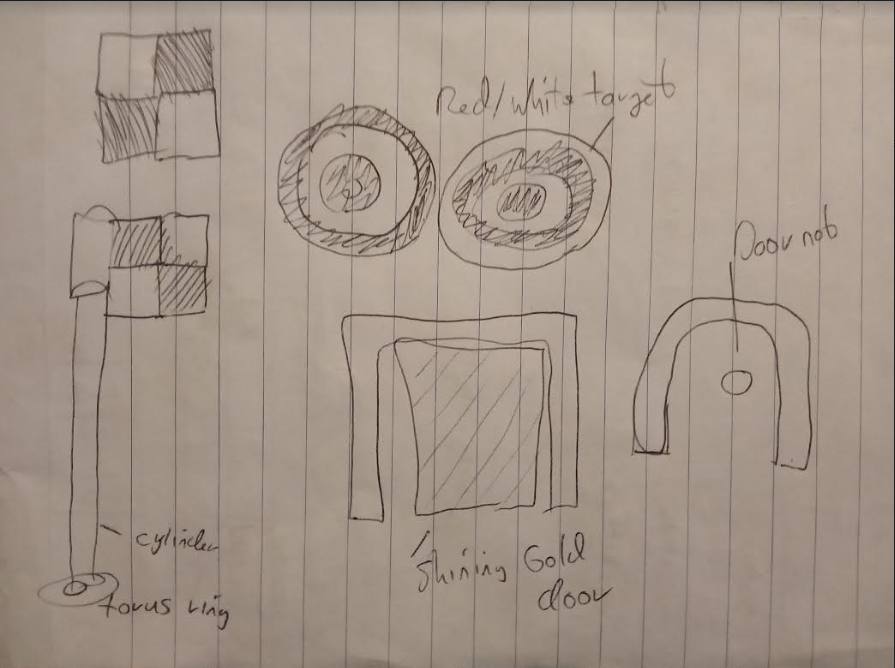 Red/white target
Door nob
cylinder
torus ring
Shining Gold
door